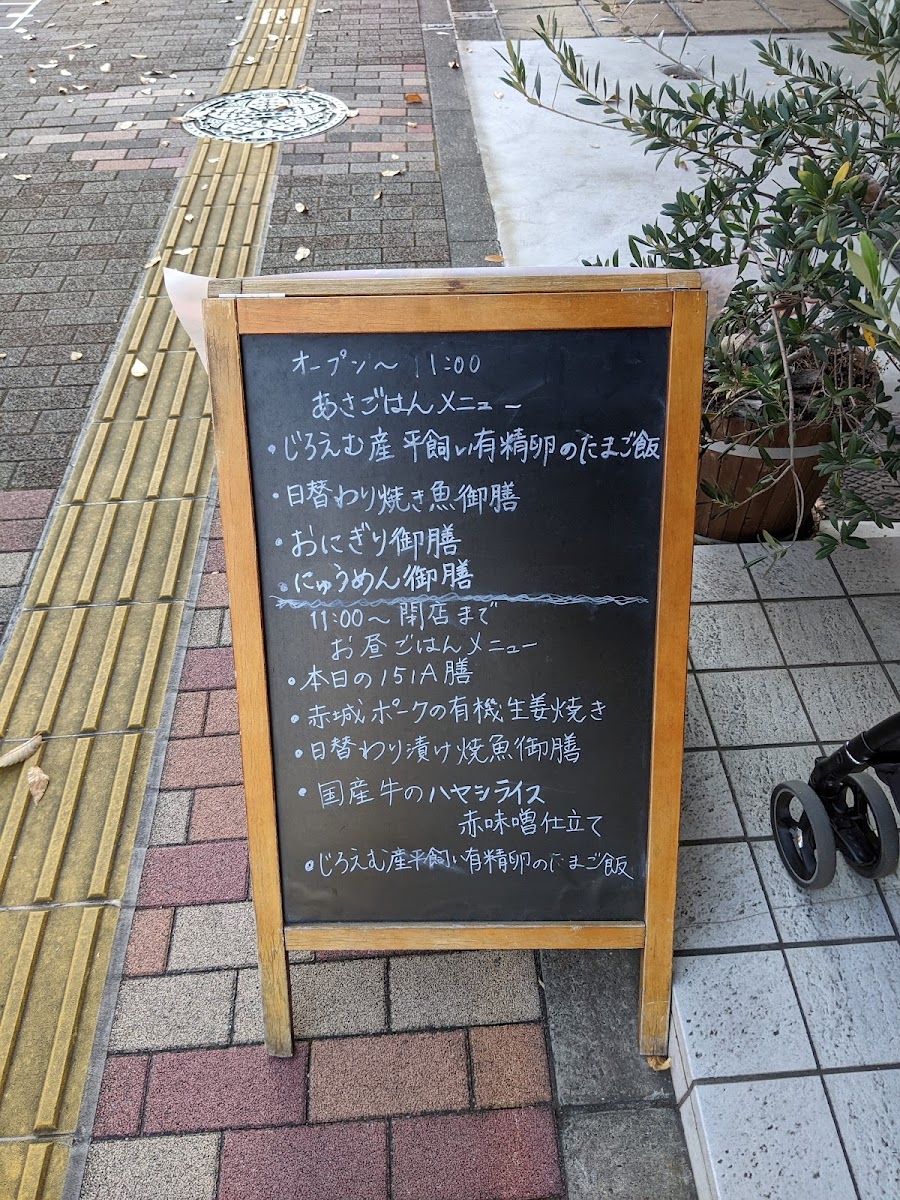 オープン〜11:00
あさごはんメニュー
・じろえむ産平飼い有精卵のたまご飯
・日替わり焼き魚御膳
・おにぎり御膳
・にゅうめん御膳
11:00〜閉店まで
お昼ごはんメニュー
・本日の151A膳
・赤城ポークの有機生姜焼き
・日替わり漬け焼魚御膳
・国産牛のハヤシライス
赤味噌仕立て
・じろえむ産平飼い有精卵のたまご飯